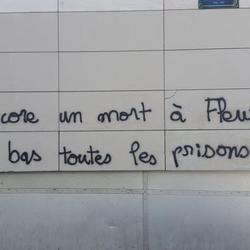 core un mort à Fleu
bas toutes les prisons